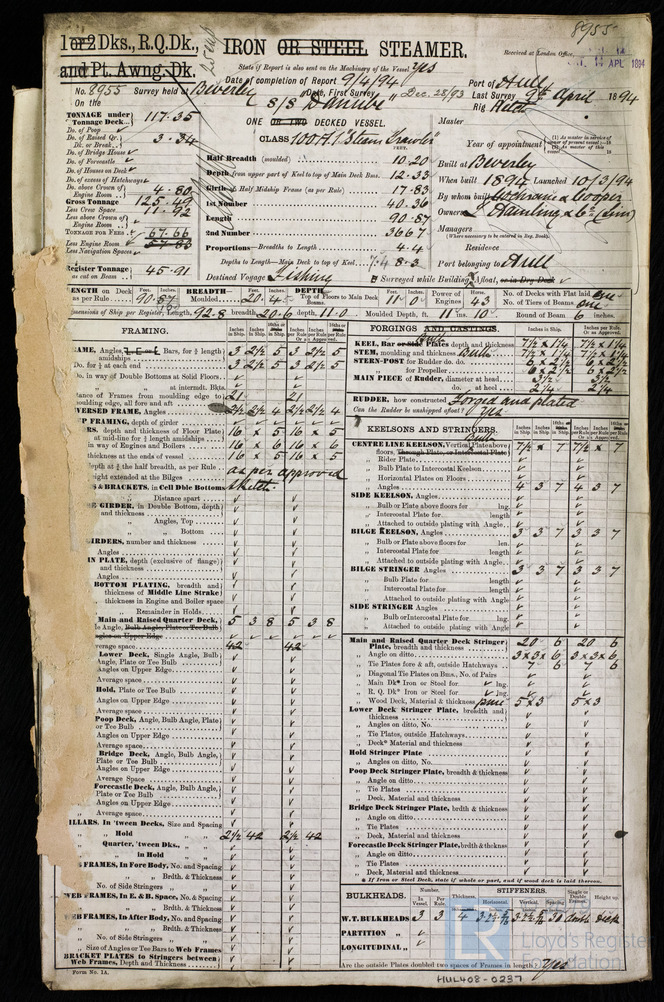 8955
1 or 2 Dks., R.Q.Dk.,
and Pt. Awng. Dk.
IRON OR STEEL STEAMER.
Received at London Office,
14 APL 1894
State of Report is also sent on the Machinery of the Vessel Yes
Date of completion of Report 9/4/94 Port of Hull
No. 8955 Survey held at Beverley Date, First Survey Dec. 28/93 Last Survey 9th April 1894
On the S/S "Danube" Rig Ketch
TONNAGE under Tonnage Deck 117.35
ONE OR TWO DECKED VESSEL.
Master
Do. of Poop
Do. of Raised Qr. Dk. or Break 3.34
CLASS 100A1 "Steam Trawler"
Year of appointment
Do. of Bridge House
Do. of Forecastle
Do. of Houses on Deck
Do. of excess of Hatchways
Do. above Crown of Engine Room 4.80
Gross Tonnage 125.49
Less Crew Space 11.92
Less above Crown of Engine Room
TONNAGE FOR FEES 67.66
Less Engine Room
Less Navigation Spaces
Register Tonnage as cut on Beam 45.91
Half Breadth (moulded) 10.20
Depth from upper part of Keel to top of Main Deck Bms. 12.33
Girth of Half Midship Frame (as per Rule) 17.83
1st Number 40.36
Length 90.87
2nd Number 3667
Proportions—Breadths to Length 4.4
Depths to Length—Main Deck to top of Keel 7.4 8.3
Destined Voyage Fishing
Built at Beverley
When built 1894 Launched 10/3/94
By whom built Cochrane & Cooper
Owners
Managers
(Where necessary to be entered in Reg. Book)
Residence
Port belonging to Hull
Surveyed while Building, Afloat, or in Dry Dock
LENGTH on Deck as per Rule 90.87 BREADTH— Moulded 20.4 DEPTH Top of Floors to Main Deck Beams 11.0 Power of Engines Horse 43 No. of Decks with Flat laid one
No. of Tiers of Beams one
Dimensions of Ship per Register, Length, 92.8 breadth 20.6 depth, 11.0 Moulded Depth, ft. 11 ins. 10 Round of Beam 6 inches.
FRAMING.
FRAME, Angles, Bars, for ¾ length amidships 3 2½ 5 3 2½ 5
Do. for ¼ at each end 3 2½ 5 3 2½ 5
Do. in way of Double Bottoms at Solid Floors
at intermdt. Bkts.
Distance of Frames from moulding edge to moulding edge, all fore and aft 21 21
REVERSED FRAME, Angles 2½ 2½ 4 2½ 2½ 4
DEEP FRAMING, depth of girder
FLOORS, depth and thickness of Floor Plate at mid-line for ½ length amidships 16 x 5 16 x 5
in way of Engines and Boilers 16 x 6 16 x 6
thickness at the ends of vessel 16 x 5 16 x 5
depth at ¾ the half breadth, as per Rule as per approved
height extended at the Bilges sketch
& BRACKETS, in Cell Dble Bottoms
Distance apart
GIRDER, in Double Bottom, depth and thickness
Angles, Top
Bottom
GIRDERS, number and thickness
Angles
MARGIN PLATE, depth (exclusive of flange) and thickness
Angles
BOTTOM PLATING, breadth and thickness of Middle Line Strake
thickness in Engine and Boiler space
Remainder in Holds
Main and Raised Quarter Deck, Angle, Bulb Angle, Plate or Tee Bulb 5 3 8 5 3 8
Angles on Upper Edge
Average space 42 42
Lower Deck, Single Angle, Bulb Angle, Plate or Tee Bulb
Angles on Upper Edge
Average space
Hold, Plate or Tee Bulb
Angles on Upper Edge
Average space
Poop Deck, Angle, Bulb Angle, Plate or Tee Bulb
Angles on Upper Edge
Average space
Bridge Deck, Angle, Bulb Angle, Plate or Tee Bulb
Angles on Upper Edge
Average Space
Forecastle Deck, Angle, Bulb Angle, Plate or Tee Bulb
Angles on Upper Edge
Average space
PILLARS. In 'tween Decks, Size and Spacing
Hold 2½ 42 2½ 42
Quarter, 'tween Dks.,
in Hold
WEB FRAMES, In Fore Body, No. and Spacing
Brdth. & Thickness
No. of Side Stringers
WEB FRAMES, In E. & B. Space, No. & Spacing
Brdth. & Thickness
WEB FRAMES, In After Body, No. and Spacing
Brdth. & Thickness
No. of Side Stringers
Size of Angles or Tee Bars to Web Frames
BRACKET PLATES to Stringers between Web Frames, Depth and Thickness
Form No. 1A.
FORGINGS AND CASTINGS.
KEEL, Bar depth and thickness 7½ x 1¼ 7½ x 1¼
STEM, moulding and thickness Bulb 7½ x 1¼ 7½ x 1¼
STERN-POST for Rudder do. do. 6 x 2½ 6 x 2½
for Propeller 6 x 2½ 6 x 2½
MAIN PIECE of Rudder, diameter at head 3½ 3½
do. at heel 2¼ 2¼
RUDDER, how constructed Forged and plated
Can the Rudder be unshipped afloat? Yes
KEELSONS AND STRINGERS.
CENTRE LINE KEELSON, Vertical Plate above floors, Through Plate, or Intercostal Plate Bulb 7½ x 7 7½ x 7
Rider Plate
Bulb Plate to Intercostal Keelson
Horizontal Plates on Floors
Angles 4 3 7 4 3 7
SIDE KEELSON, Angles
Bulb or Plate above floors for lng.
Intercostal Plate for length
Attached to outside plating with Angle
BILGE KEELSON, Angles 3 3 7 3 3 7
Bulb or Plate above floors for len.
Intercostal Plate for length
Attached to outside plating with Angle
BILGE STRINGER Angles 3 3 7 3 3 7
Bulb Plate for length
Intercostal Plate for length
Attached to outside plating with Angle
SIDE STRINGER Angles
Bulb or Intercostal Plate for lng.
Attached to outside plating with Angle
Main and Raised Quarter Deck Stringer Plate, breadth and thickness 20 6 20 6
Angle on ditto 3 x 3 x 6 3 x 3 x 6
Tie Plates fore & aft, outside Hatchways 7 6 7 6
Diagonal Tie Plates on Bms., No. of Pairs
Main Dk* Iron or Steel for lng.
R. Q. Dk* Iron or Steel for lng.
Wood Deck, Material & thickness pine 5 x 3 5 x 3
Lower Deck Stringer Plate, breadth and thickness
Angles on ditto, No.
Tie Plates, outside Hatchways
Deck* Material and thickness
Hold Stringer Plate
Angles on ditto, No.
Poop Deck Stringer Plate, breadth & thickness
Angle on ditto
Tie Plates
Deck, Material and thickness
Bridge Deck Stringer Plate, brdth & thickness
Angle on ditto
Tie Plates
Deck, Material and thickness
Forecastle Deck Stringer Plate, brdth & thickns
Angle on ditto
Tie Plates
Deck, Material and thickness
* If Iron or Steel Deck, state if whole or part, and if wood deck is laid thereon.
BULKHEADS. Number. Thickness. STIFFENERS. Horizontal. Spacing. Vertical. Spacing. Single or Double Frames. Height up.
W.T. BULKHEADS 3 3 4 30 double Deck
PARTITION
LONGITUDINAL
Are the outside Plates doubled two spaces of Frames in length? Yes
Lloyd's Register
Foundation
HUL408-0237